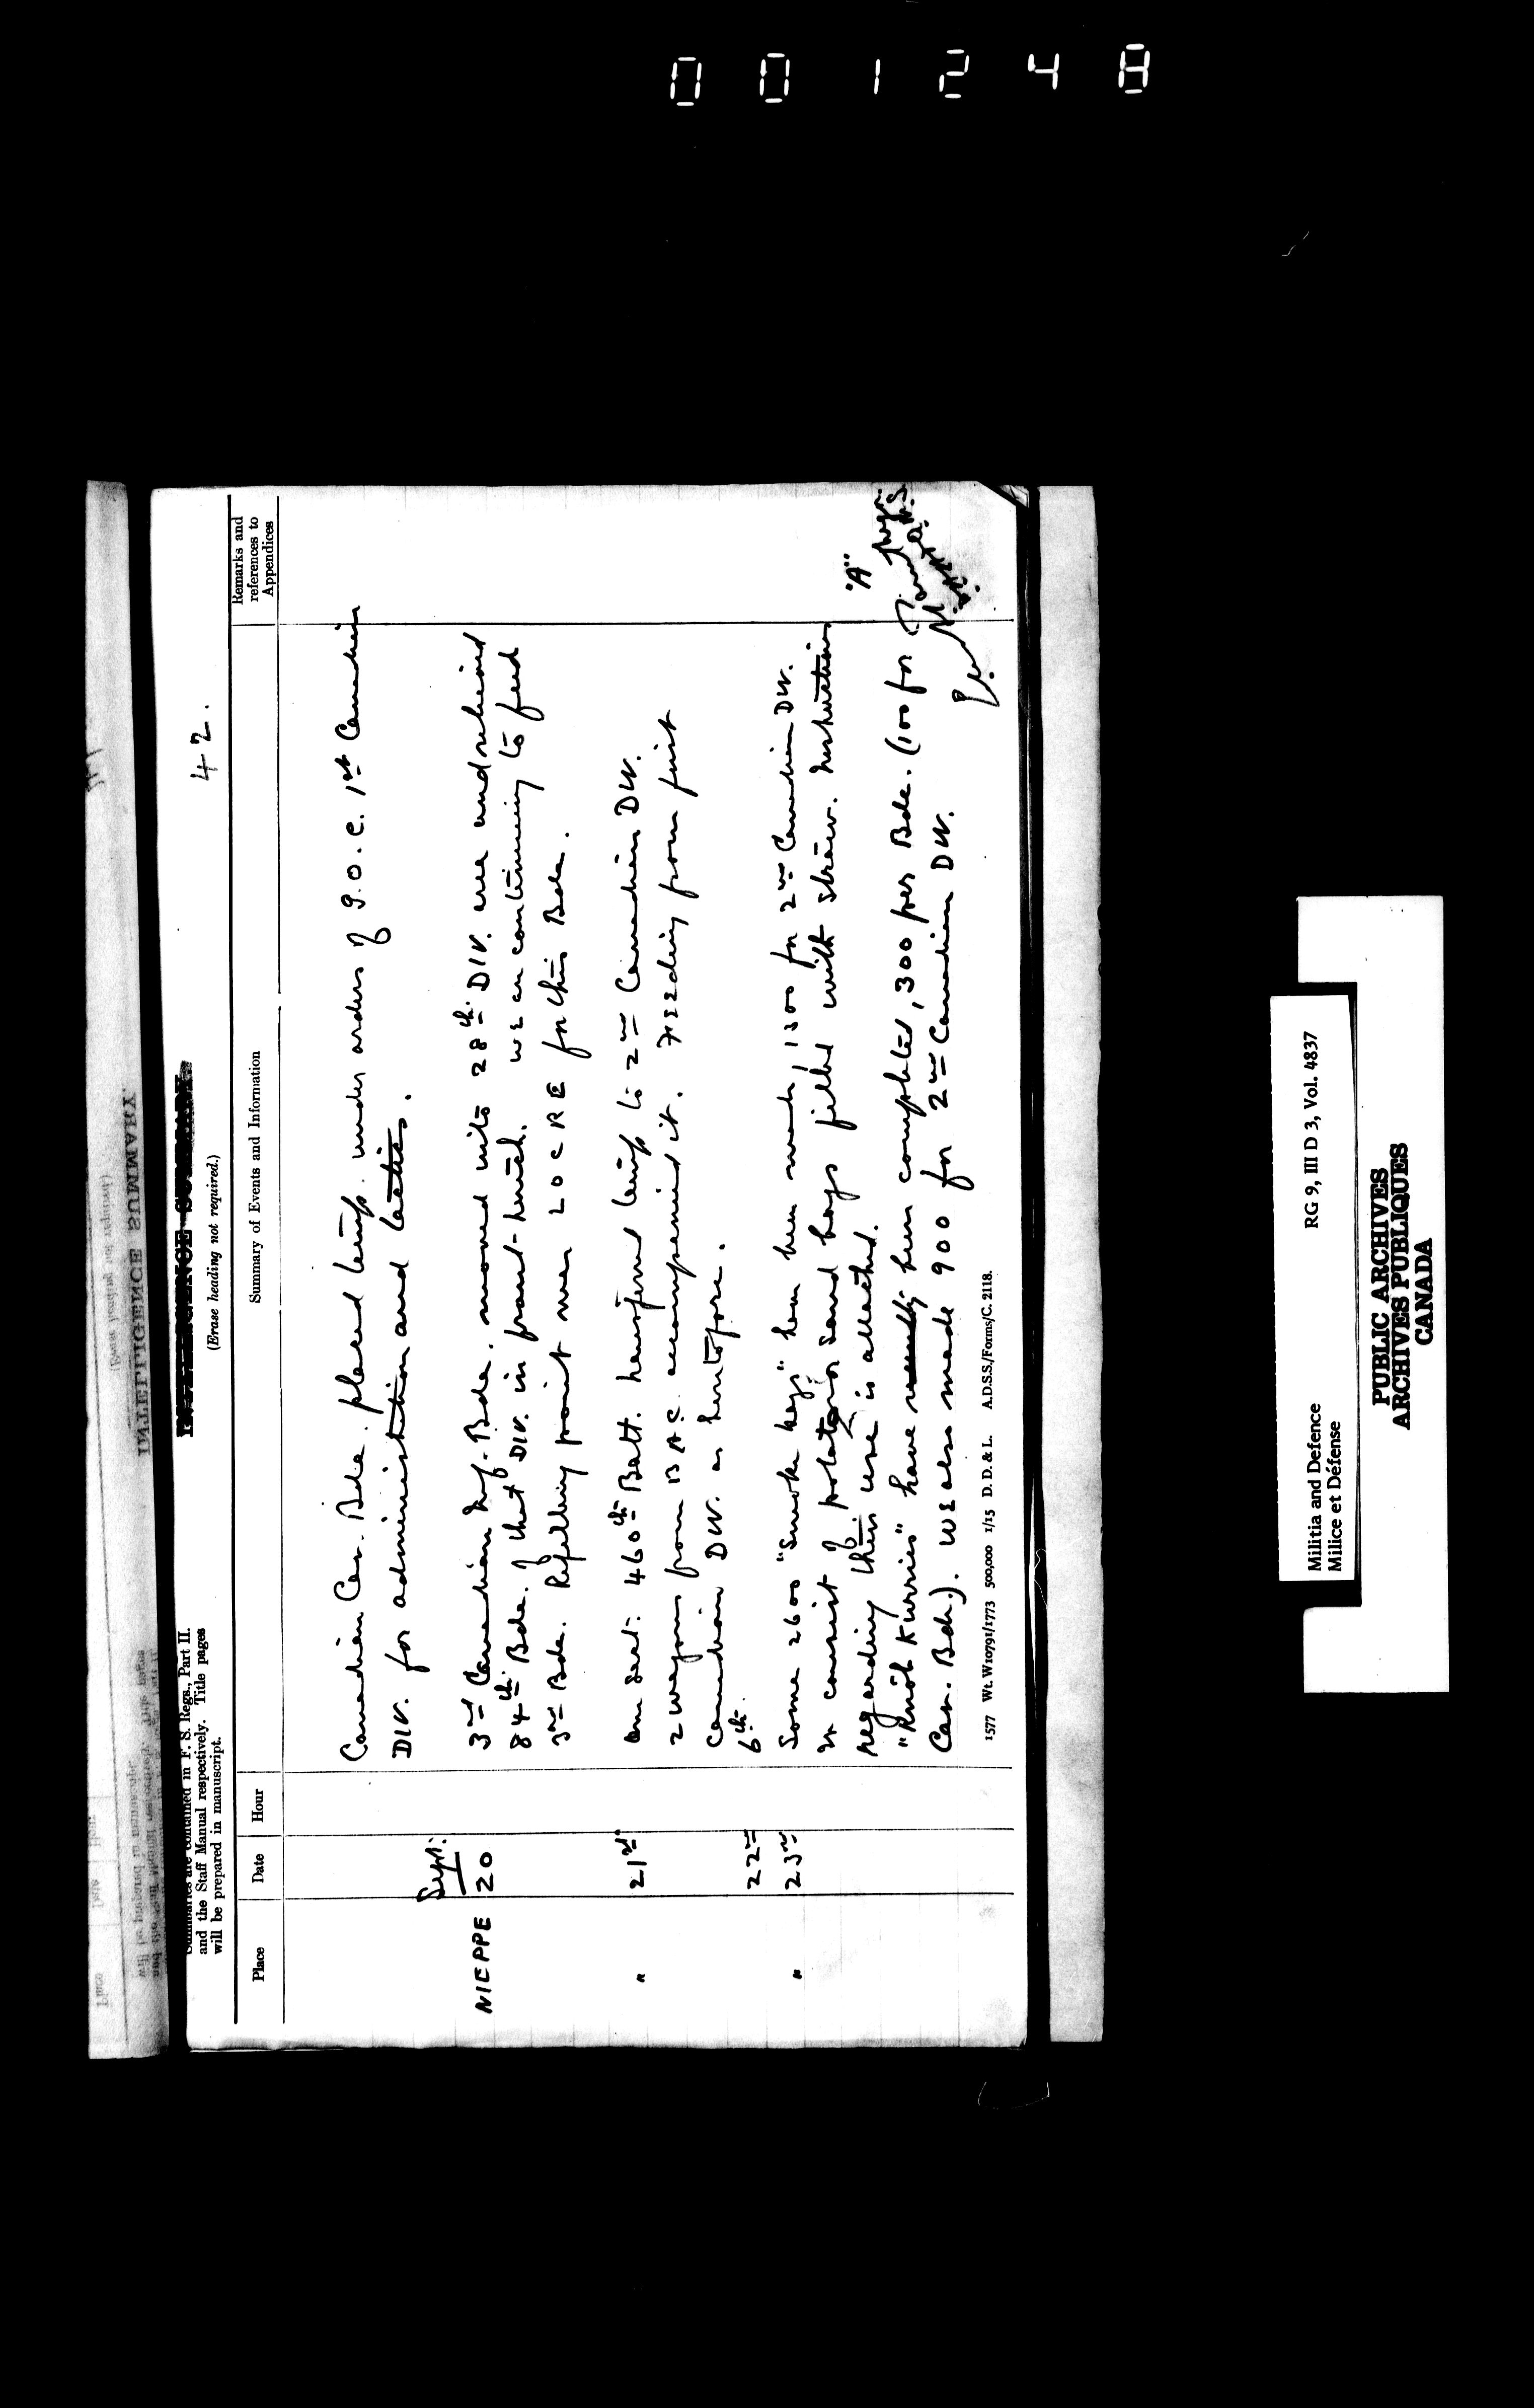 0012 4
42.
Summaries are contained in F. S. Regs., Part II.
and the Staff Manual respectively. Title pages
will be prepared in manuscript.
INTELLIGENCE SUMMARY.
(Erase heading not required.)
Place
Date
Hour
Summary of Events and Information
Remarks and
references to
Appendices
Canadian Cav. Bde. placed temp. under orders of G.O.C. 1st Canadian
DIV. for administration and tactics.
NIEPPE
Sept:
20
3rd Canadian Inf. Bde. moved into 28th DIV. area and relieved
84th Bde. of that DIV. in front-trench. We are continuing to feed
3rd Bde. Refilling point near LOCRE for this Bde.
"
21st
Am Sect: 460th Batt. transferred temp to 2nd Canadian DIV.
2 wagons from BAC accompanied it. Feeding from first
Canadian DIV. as heretofore.
22nd
6th
"
23rd
Some 2600 "Smoke bags" have been made, 1300 for 2nd Canadian DIV.
consist of potato sand bags filled with straw. Instructions
regarding their use is attached.
"A"
"Knot Kurries" have been completed, 300 per Bde. (100 for
Cav. Bde.). We also made 900 for 2nd Canadian DIV.
1577 Wt. W10791/1773 500,000 1/15 D. D. & L. A.D.S.S./Forms/C. 2118.
Militia and Defence
Milice et Défense
RG 9, III D 3, Vol. 4837
PUBLIC ARCHIVES
ARCHIVES PUBLIQUES
CANADA